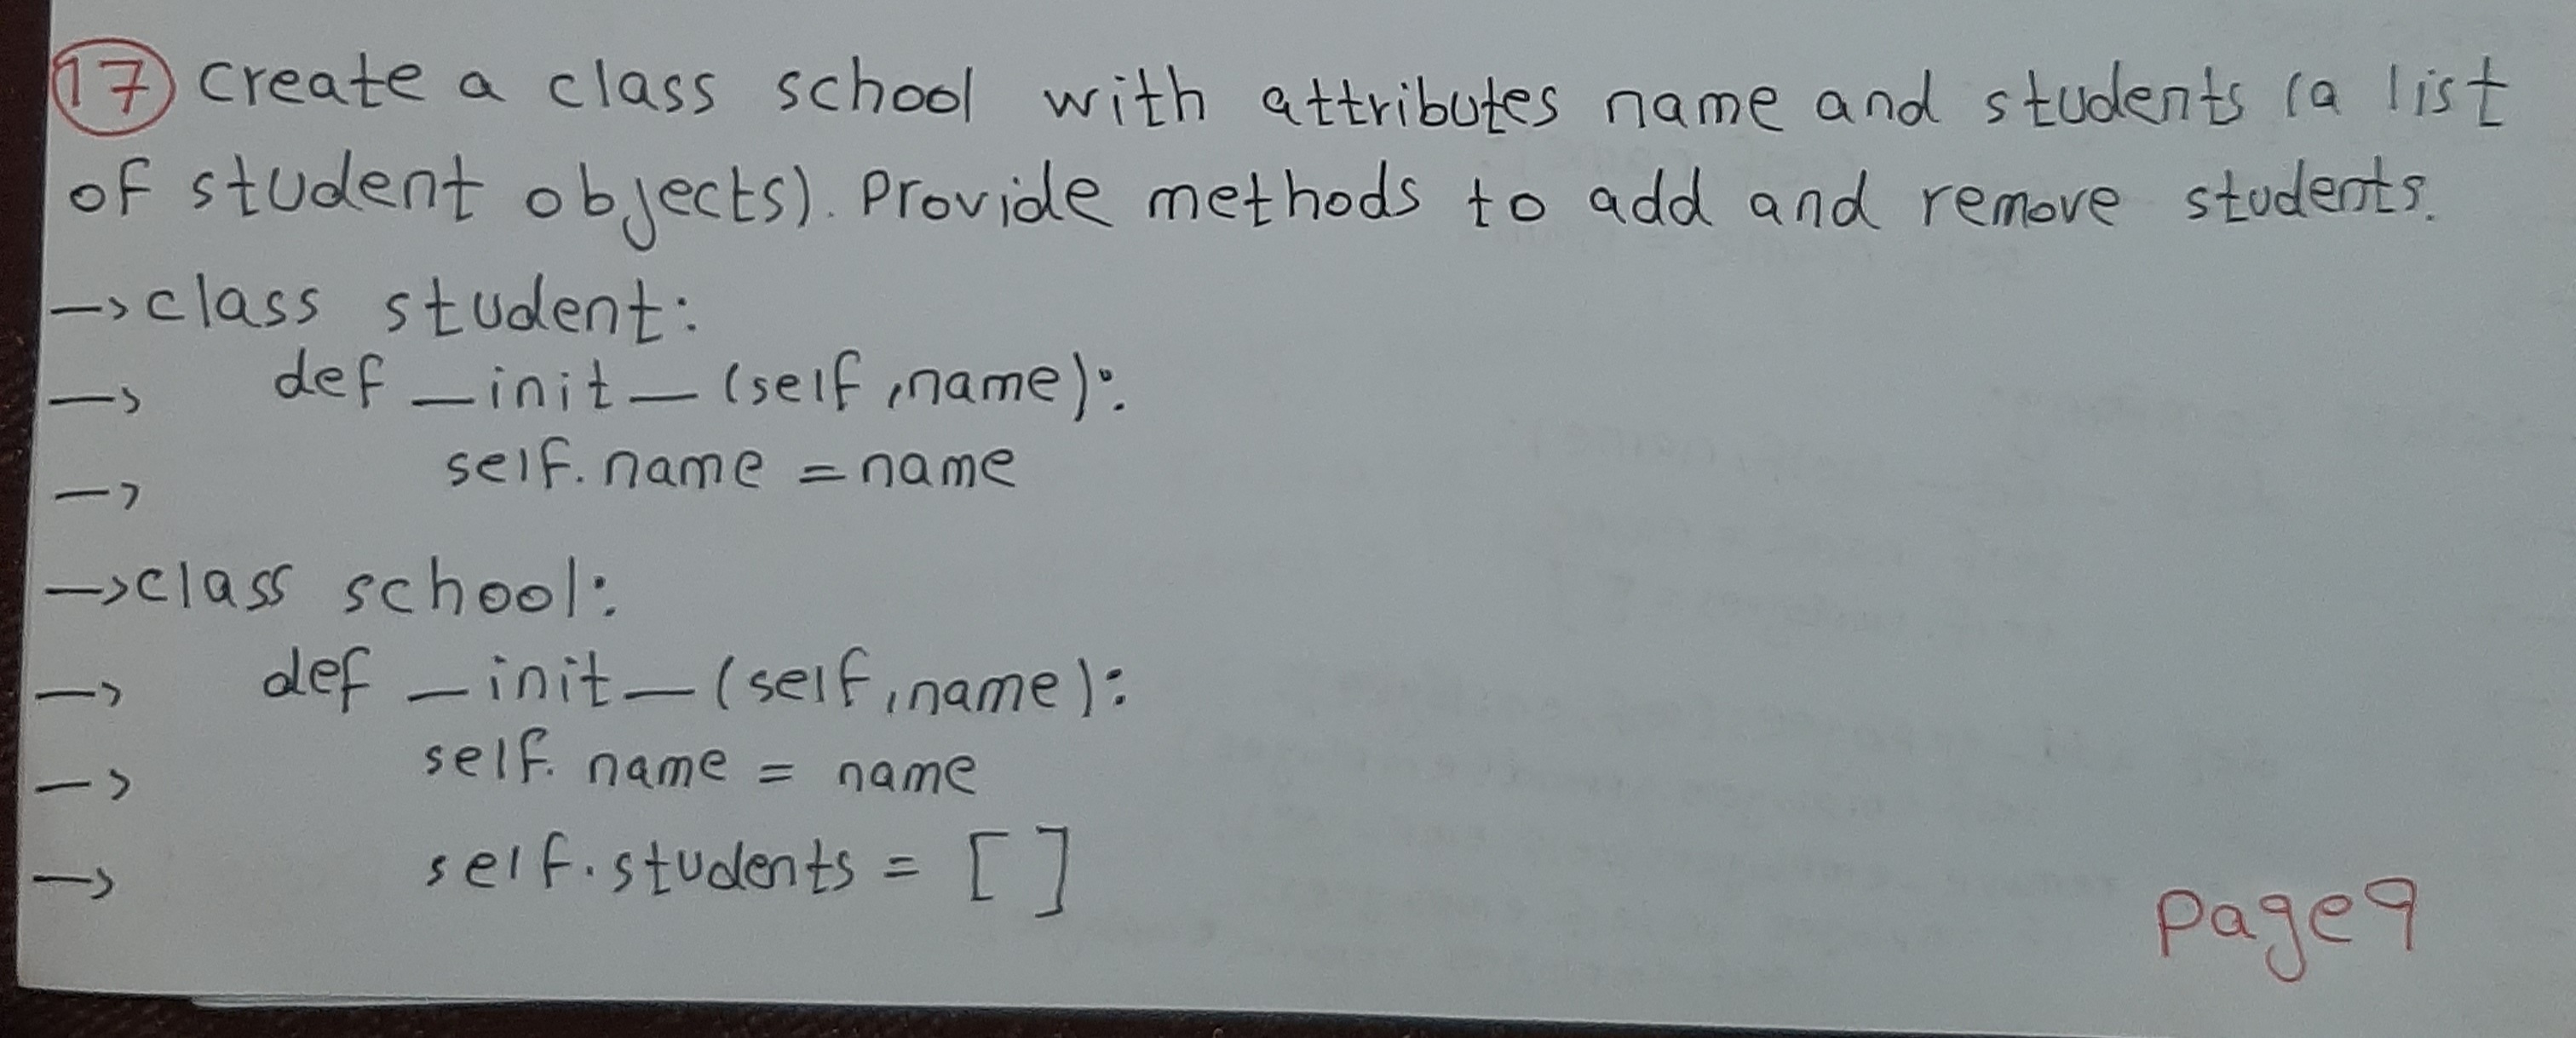 17 Create a class school with attributes name and students (a list
of student objects). Provide methods to add and remove students.
→class student:
→ def _init_(self,name):
→ self.name =name
→class school:
→ def _init_(self,name):
→ self.name = name
→ self.students = []
page9